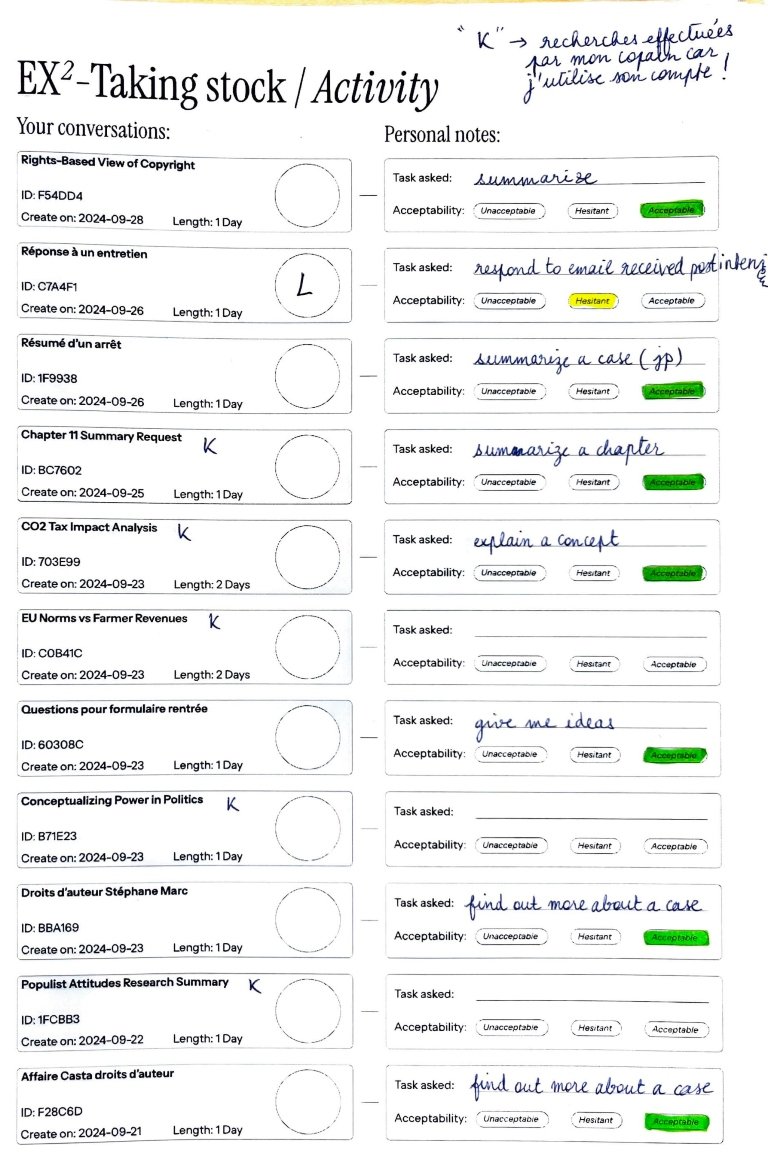 "K" → recherches effectuées
par mon copain car
j'utilise son compte !
EX²-Taking stock / Activity
Your conversations:
Personal notes:
Rights-Based View of Copyright
ID: F54DD4
Create on: 2024-09-28 Length: 1 Day
Task asked: summarize
Acceptability: Unacceptable Hesitant Acceptable
Réponse à un entretien
ID: C7A4F1
Create on: 2024-09-26 Length: 1 Day
L
Task asked: respond to email received post
Acceptability: Unacceptable Hesitant Acceptable
Résumé d'un arrêt
ID: 1F9938
Create on: 2024-09-26 Length: 1 Day
Task asked: summarize a case (jp)
Acceptability: Unacceptable Hesitant Acceptable
Chapter 11 Summary Request K
ID: BC7602
Create on: 2024-09-25 Length: 1 Day
Task asked: summarize a chapter
Acceptability: Unacceptable Hesitant Acceptable
CO2 Tax Impact Analysis K
ID: 703E99
Create on: 2024-09-23 Length: 2 Days
Task asked: explain a concept
Acceptability: Unacceptable Hesitant Acceptable
EU Norms vs Farmer Revenues K
ID: C0B41C
Create on: 2024-09-23 Length: 2 Days
Task asked:
Acceptability: Unacceptable Hesitant Acceptable
Questions pour formulaire rentrée
ID: 60308C
Create on: 2024-09-23 Length: 1 Day
Task asked: give me ideas
Acceptability: Unacceptable Hesitant Acceptable
Conceptualizing Power in Politics K
ID: B71E23
Create on: 2024-09-23 Length: 1 Day
Task asked:
Acceptability: Unacceptable Hesitant Acceptable
Droits d'auteur Stéphane Marc
ID: BBA169
Create on: 2024-09-23 Length: 1 Day
Task asked: find out more about a case
Acceptability: Unacceptable Hesitant Acceptable
Populist Attitudes Research Summary K
ID: 1FCBB3
Create on: 2024-09-22 Length: 1 Day
Task asked:
Acceptability: Unacceptable Hesitant Acceptable
Affaire Casta droits d'auteur
ID: F28C6D
Create on: 2024-09-21 Length: 1 Day
Task asked: find out more about a case
Acceptability: Unacceptable Hesitant Acceptable